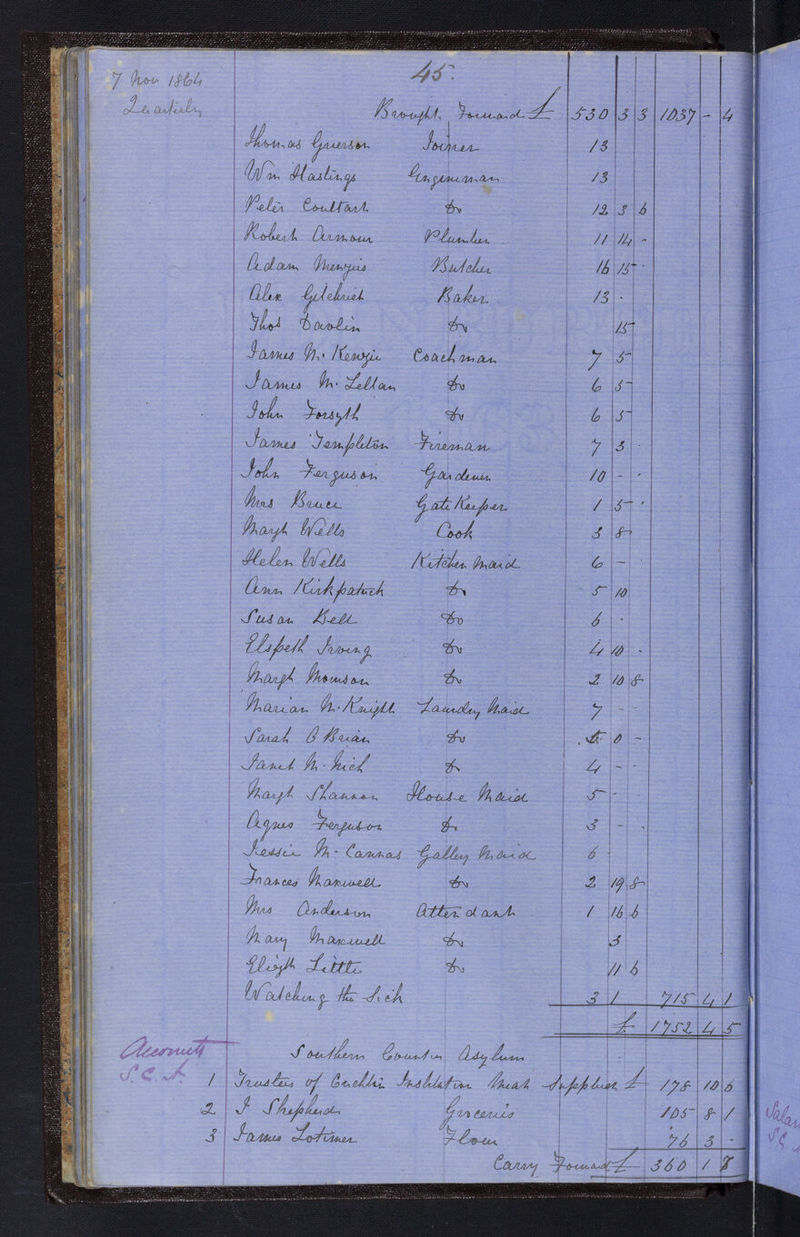 45.
7 Nov 1864
Quarterly
Brought Forward £ 530 3 3 1037 - 4
Thomas Grierson Joiner 13
Wm Hastings Engineman 13
Peter Coultart Do 12 3 6
Robert Armour Plumber 11 14 -
Adam Menzies Butcher 16 15 .
Alex Gilchrist Baker 13 .
Thos Davlin Do 15
James Mc Kenzie Coachman 7 5
James Mc Lellan Do 6 5
John Forsyth Do 6 5
James Templeton Fireman 7 3 .
John Ferguson Gardener 10 - .
Mrs Bruce Gate Keeper 1 5 .
Margt Wells Cook 3 8
Helen Wells Kitchen Maid 6 -
Ann Kirkpatrick Do 5 10
Susan Bell Do 6 .
Elspeth Irving Do 4 10 .
Margt Thomson Do 2 10 8
Marian Mc Knight Laundry Maid 7 - -
Sarah O Brian Do 0 -
Janet Mc Do 4 - -
Margt Shannon House Maid 5 -
Agnes Ferguson Do 3 - .
Jessie Mc Cannas Galley Maid 6
Frances Maxwell Do 2 19 8
Mrs Anderson Attendant 1 16 6
Mary Maxwell Do 3
Elizth Little Do 11 6
Watching the Sick 3 1 715 4 1
£ 1752 4 5
Accounts
S. C. A.
Southern Counties Asylum
1 Trustees of Crichton Institution Meat Supplied £ 178 10 6
2 J Shepherd Groceries 105 8 1
3 James Lotimer Flour 76 3 -
Carry Forward £ 360 1 7